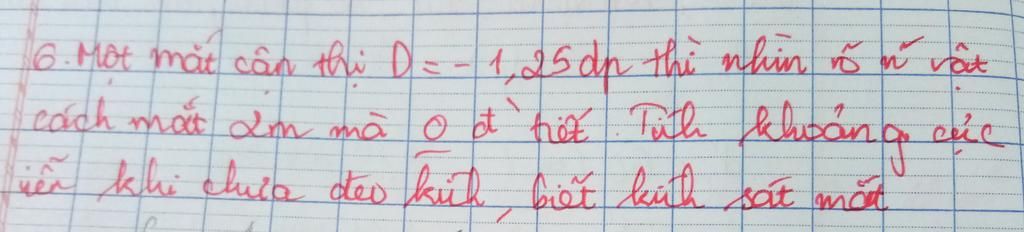 6. Một mắt cận thị D = - 1,25dp thì nhìn rõ n~ vật
cách mắt 2m mà 0 đ` tiết. Tính khoảng cực
viễn khi chưa đeo kính, biết kính sát mắt